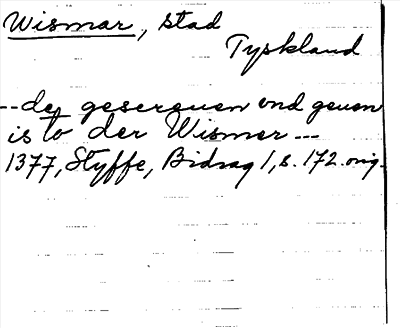 Wismar, stad
Tyskland
--de gesereuen ond geuen
is to der Wismer ---
1377, Styffe, Bidrag I, s. 172. orig.